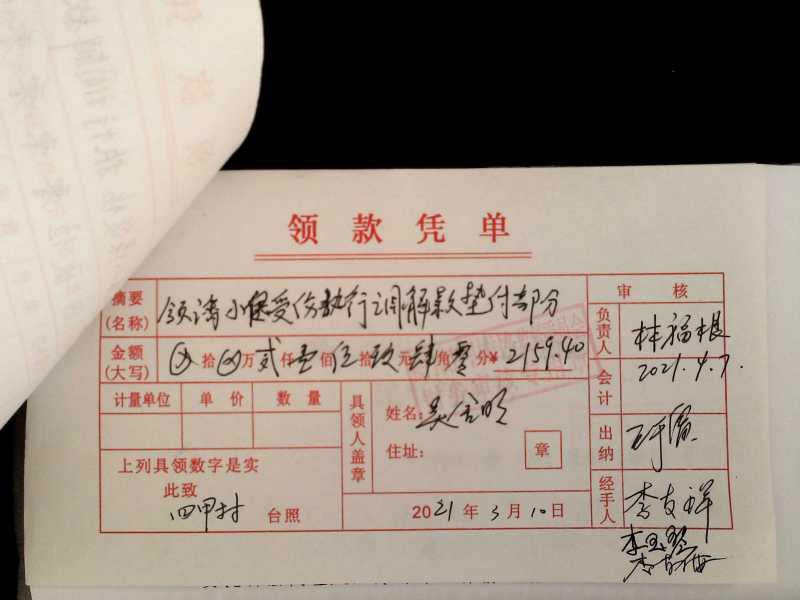 领款凭单
摘要(名称) 领 小 受伤执行调解款垫付部分
金额(大写) ⊗拾⊗万贰仟壹佰伍拾玖元肆角零分¥2159.40
计量单位 单价 数量
具领人盖章
姓名: 吴 明
住址: 章
上列具领数字是实
此致
四甲村 台照
2021年3月10日
审核
负责人 林福根
会计 2021.4.7.
出纳
经手人 李友祥